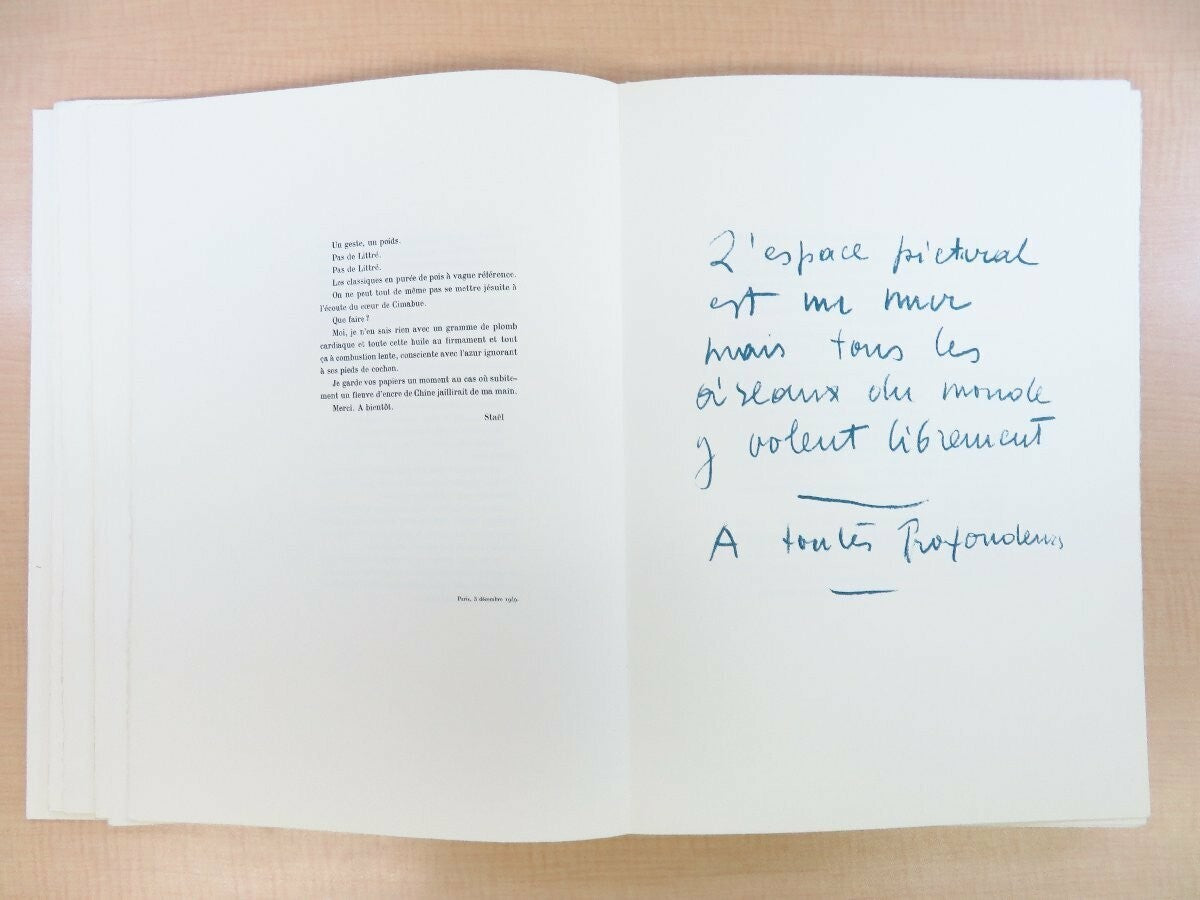 Un geste, un poids.
Pas de Littré.
Pas de Littré.
Les classiques en purée de pois à vague référence.
On ne peut tout de même pas se mettre jésuite à
l'écoute du cœur de Cimabue.
Que faire ?
Moi, je n'en sais rien avec un gramme de plomb
cardiaque et toute cette huile au firmament et tout
ça à combustion lente, consciente avec l'azur ignorant
à ses pieds de cochon.
Je garde vos papiers un moment au cas où subite-
ment un fleuve d'encre de Chine jaillirait de ma main.
Merci. A bientôt.
Staël
Paris, 3 décembre 1949.
L'espace pictural
est un mur
mais tous les
oiseaux du monde
y volent librement
A toutes Profondeurs